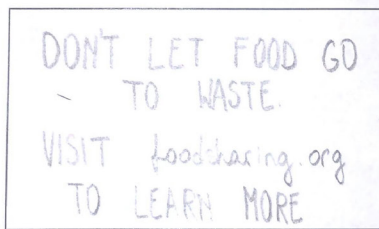 DON'T LET FOOD GO
TO WASTE.
VISIT foodsharing.org
TO LEARN MORE